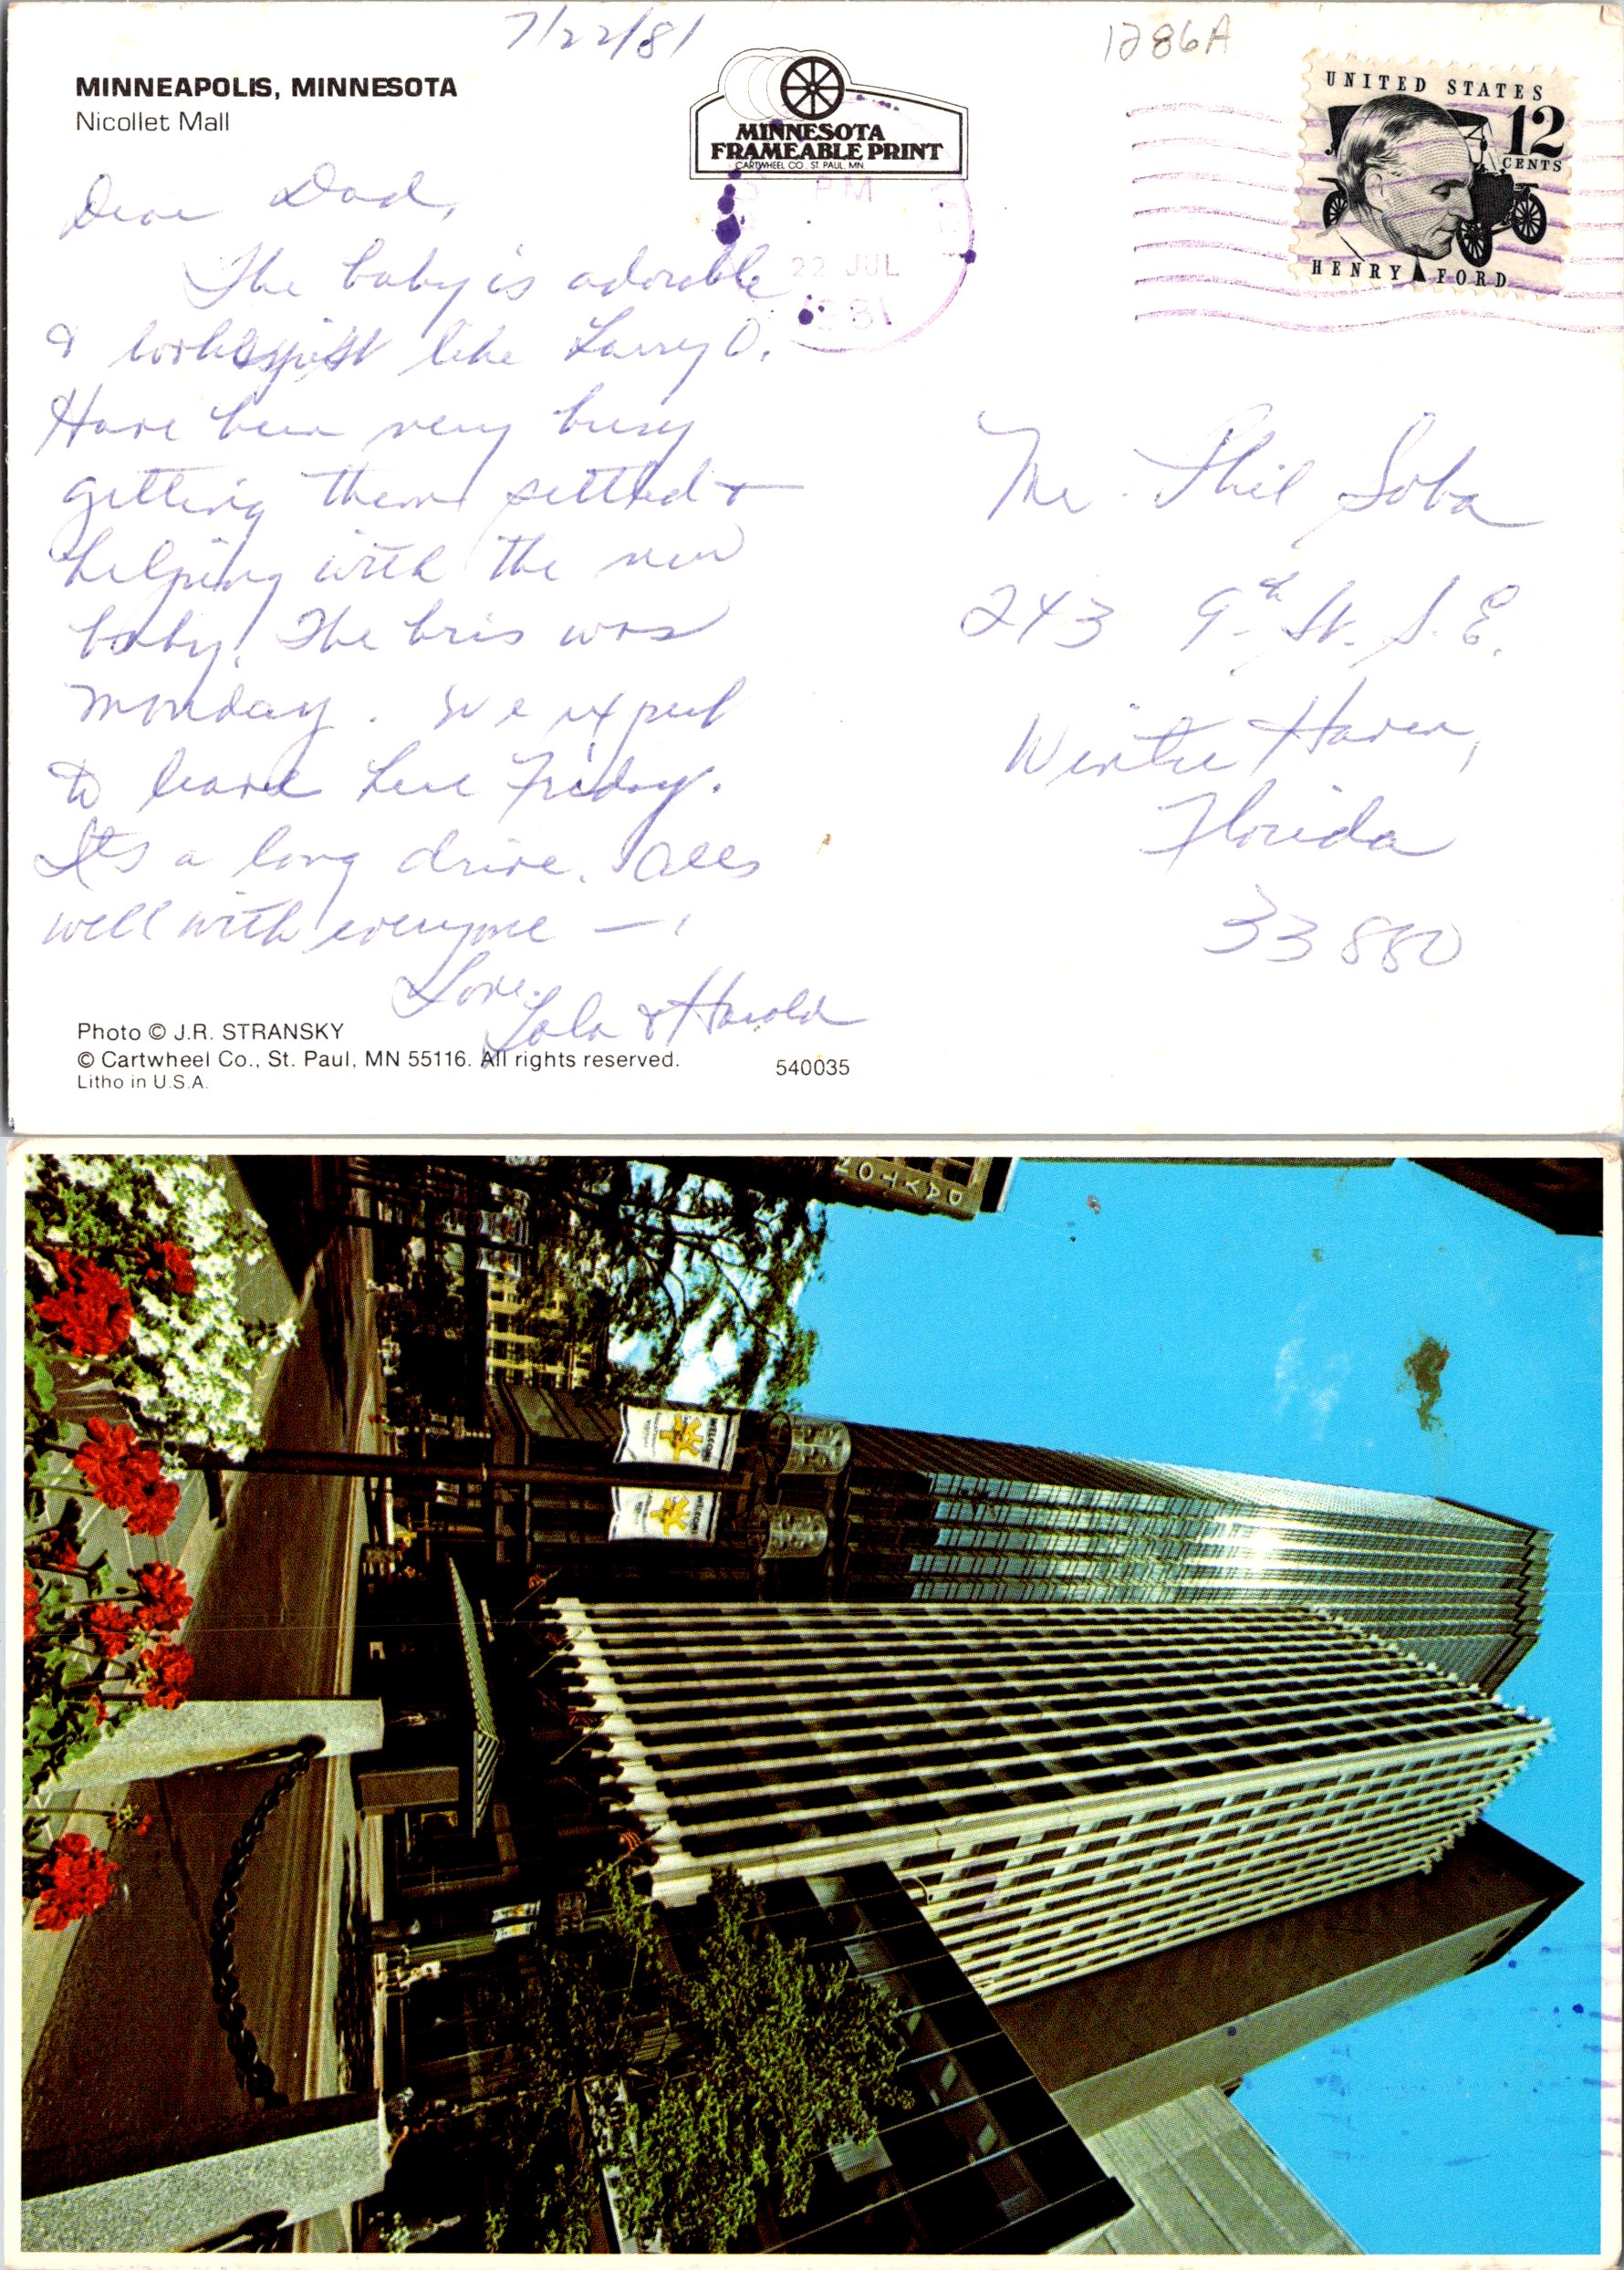 7/22/81
1286A
MINNEAPOLIS, MINNESOTA
Nicollet Mall
MINNESOTA
FRAMEABLE PRINT
CARTWHEEL CO., ST. PAUL, MN.
PM
22 JUL
1981
UNITED STATES
12
CENTS
HENRY FORD
Dear Dad,
The baby is adorable
& looks just like Larry O.
Have been very busy
getting them settled +
helping with the new
baby. The bris was
Monday. We expect
to leave here Friday.
It's a long drive. All's
well with everyone —
Love,
Lola & Harold
Mr. Phil Soba
243 9th St. S.E.
Winter Haven,
Florida
33880
Photo © J.R. STRANSKY
© Cartwheel Co., St. Paul, MN 55116. All rights reserved.
Litho in U.S.A.
540035
DAYTON
WELCOME
WELCOME